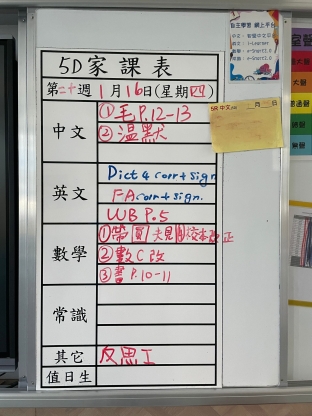 5D家課表
第二十週 1月16日(星期四)
中文
①毛 P.12-13
②溫默
英文
Dict 4 corr + sign
FA corr + sign.
WB P.5
數學
②數C改
③書 P.10-11
常識
其它
反思工
值日生
自主學習 網上平台
5R 中文 月 日